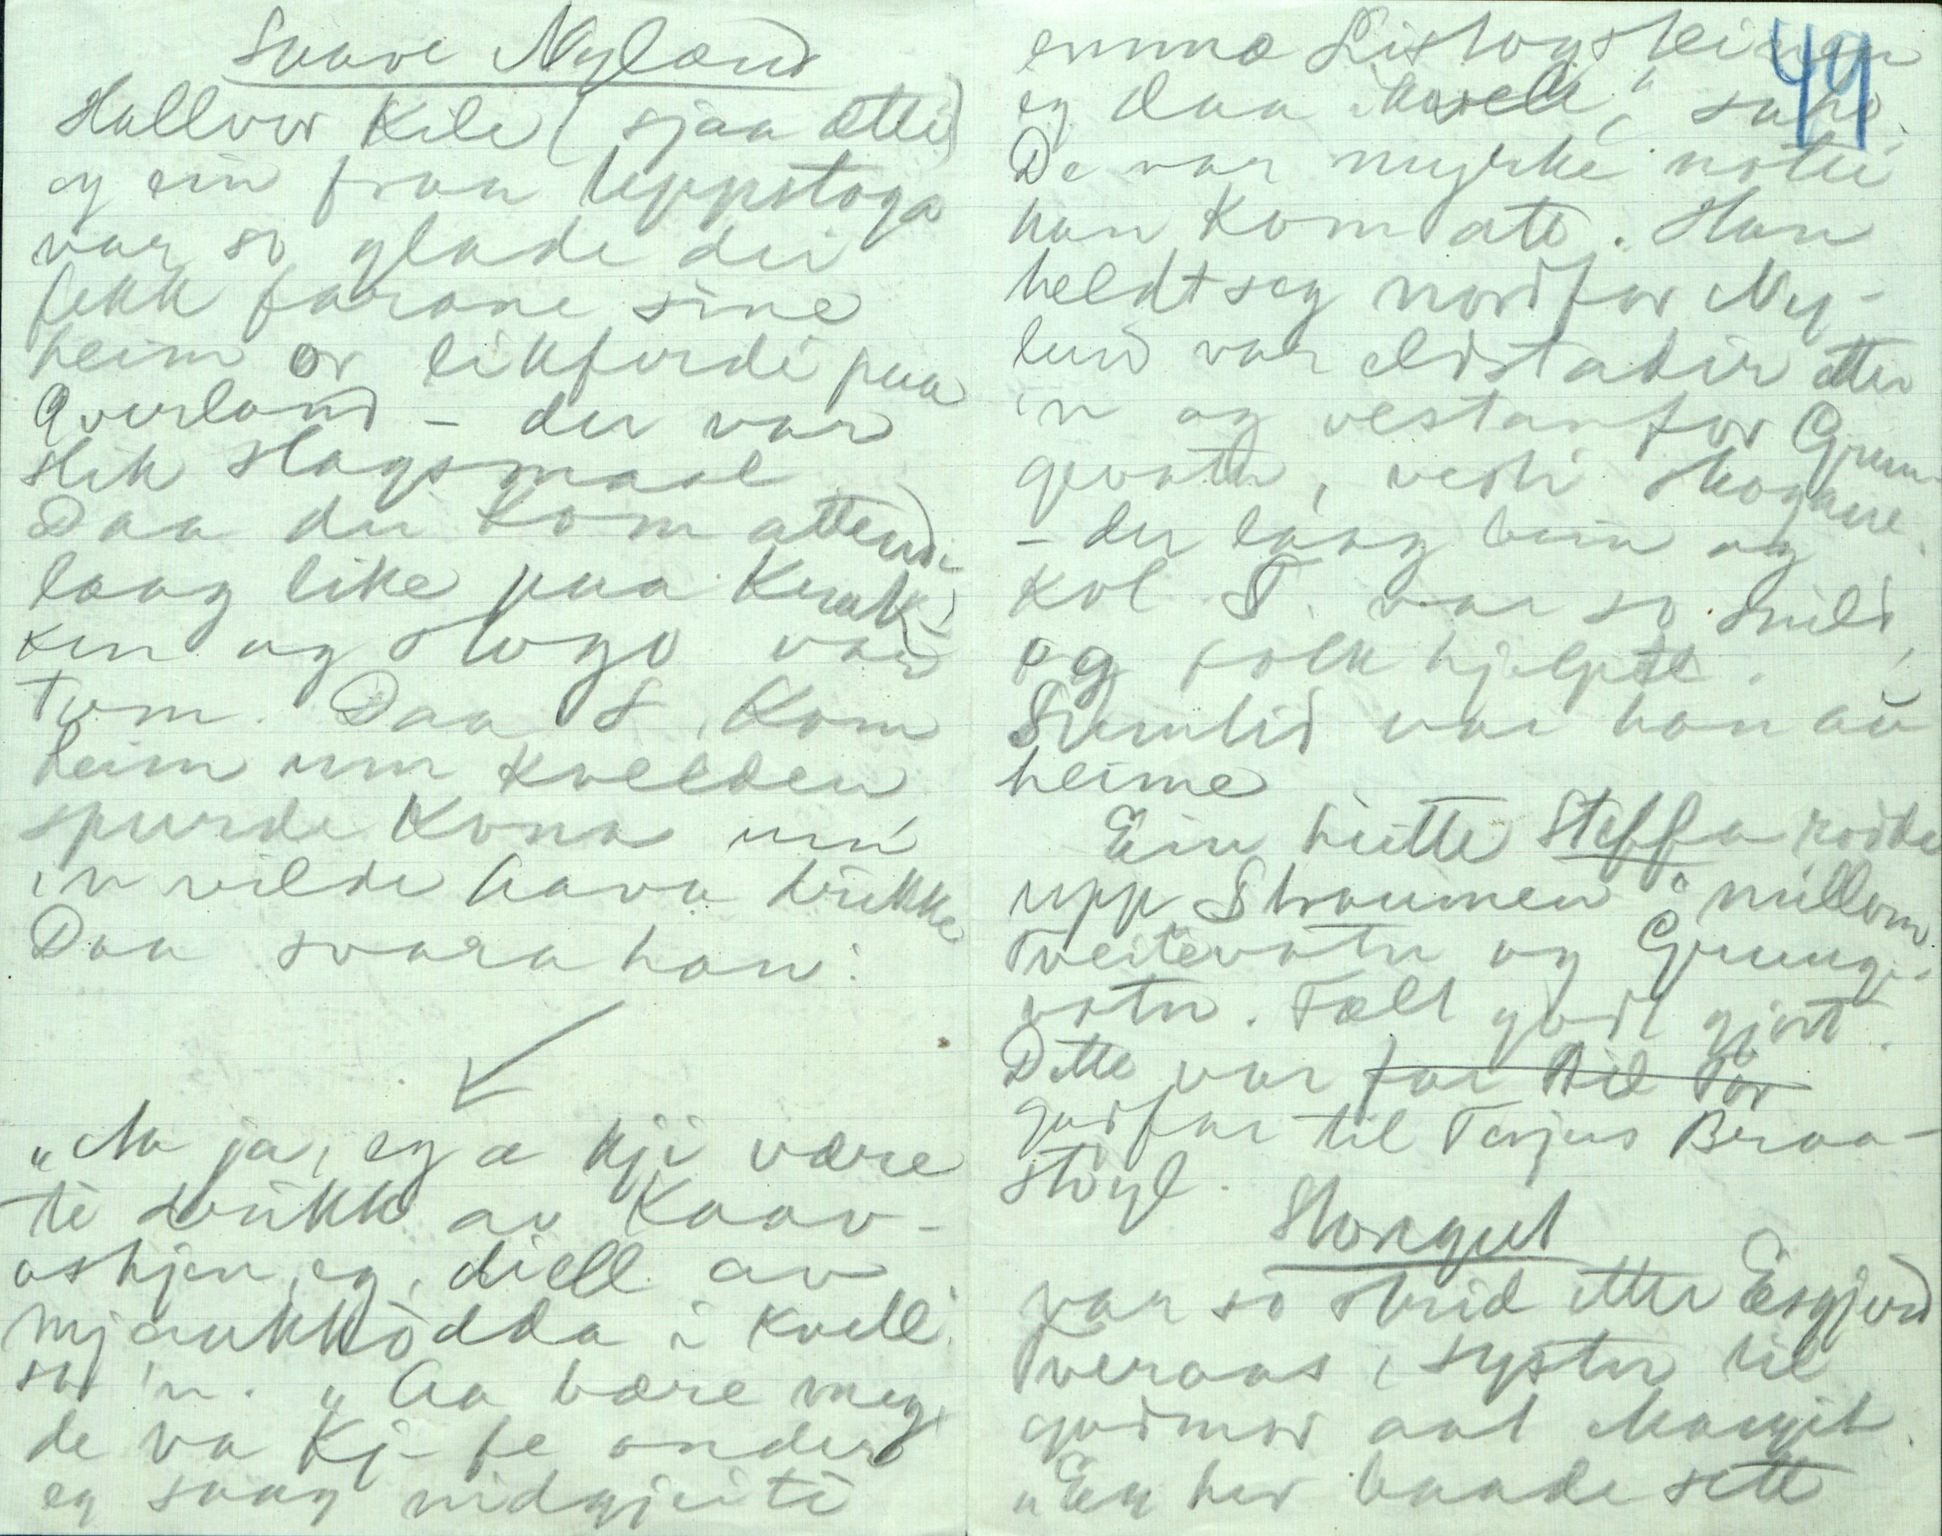 Svave Nyland
Hallvor Kile (sjaa ette)
og ein fraa Uppstoga
var so glade dei
fekk farane sine
heim or likferdi paa
Øverland - der var
slik slagsmaal
Daa dei kom attende
laag like paa Krak-
ken og stogo var
tom. Daa S. kom
heim um kvelden
spurde kona um
'n vilde hava drikke
Daa svara han:
„Na ja, eg æ kji være
te drikk av Kaav-
askjen, eg, diell av
mjaukkødda i kvell"
sa 'n. „Aa bære meg
de va kj- fe ander
eg saag nidgjeiti
49
emma Listogsteinen
eg daa Marelt," sa'n.
De var myrke notti
han kom att. Han
heldt seg nordfor Ny-
lund var eldstadir etter
'n og vestanfor Grun-
gevatn, vesti skogane
- der laag bein og
kol. S. var so snild,
og folk hjelpte.
Sumtid var han av
heime
Ein hette Steffa rodde
upp Straumen millom
Tveitevatn og Grunge-
vatn. Tælt godt gjort.
Dette var far til Tor
godfar til Terjus Braa-
støyl.
Storegut
var so strid etter Æsgjerd
Tveraas, syster til
godmor aat Margit.
„Eg her baade sett